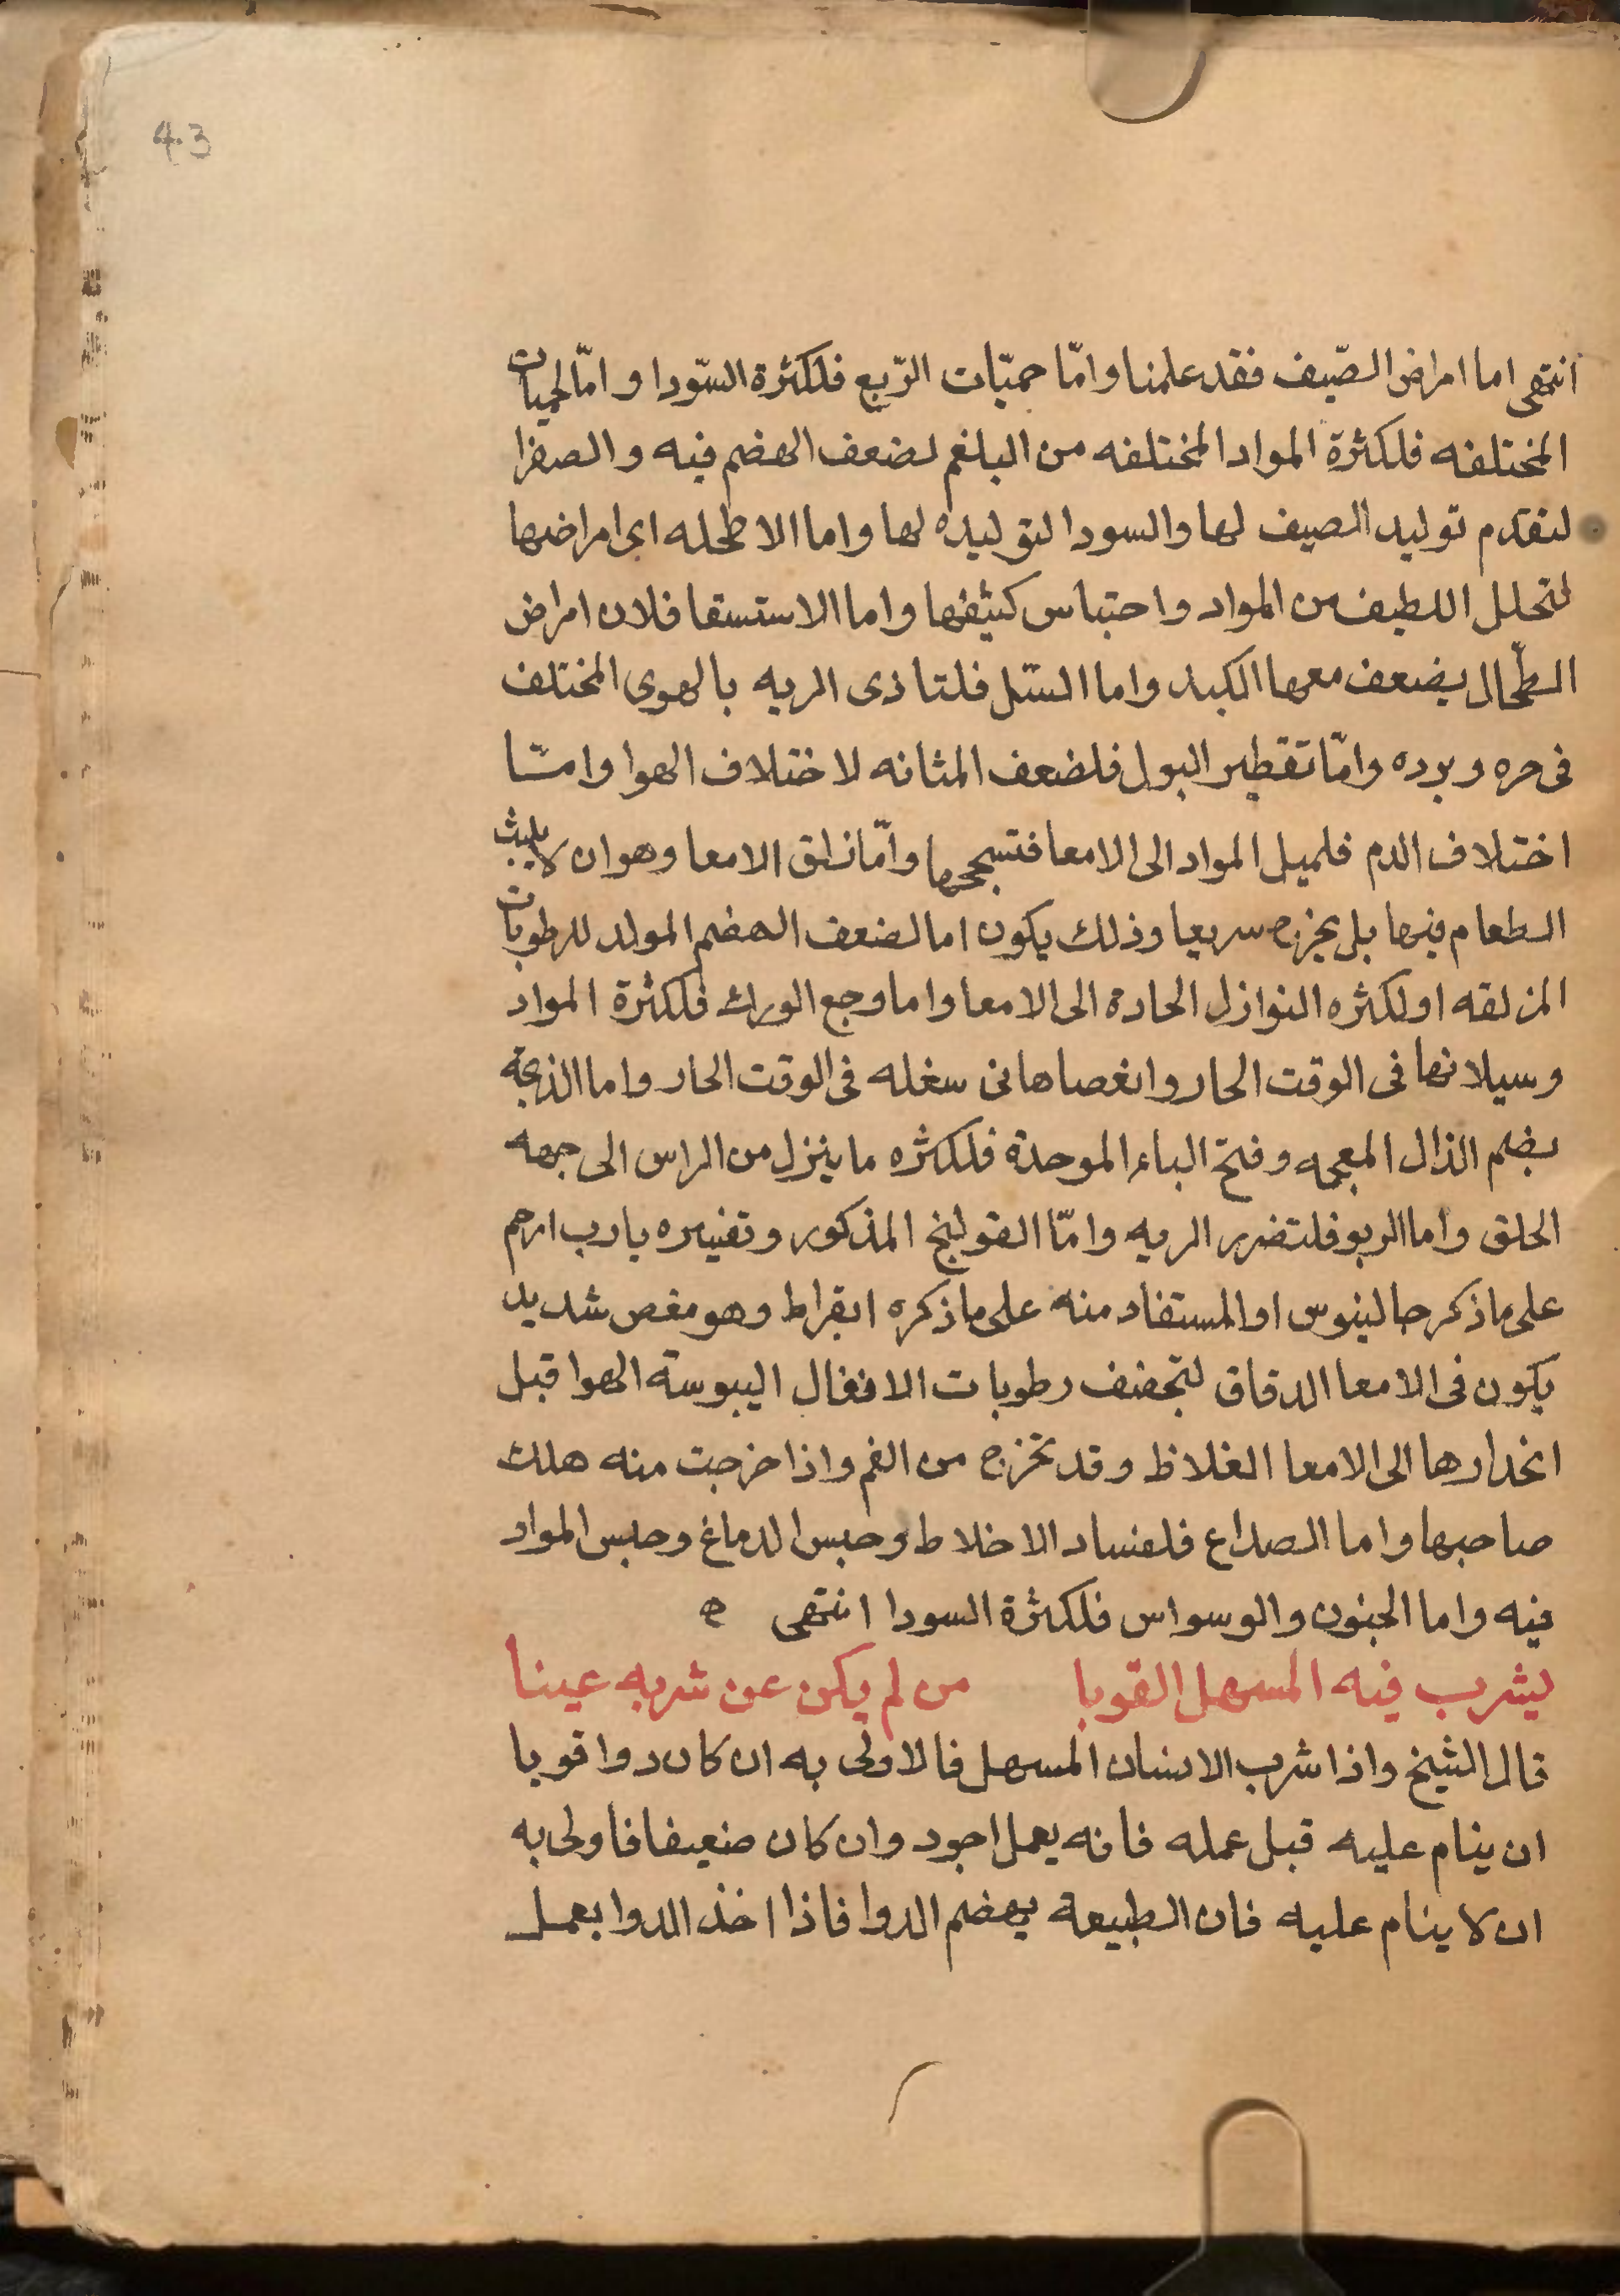 43
انتهى اما امراض الصّيف فقد علمنا وامّا حميّات الرّبع فلكثرة السّودا وامّا الحميات
المختلفه فلكثرة المواد المختلفه من البلغم لضعف الهضم فيه والصفرا
لتقدم توليد الصيف لها والسودا لتوليده لها واما الاطحله اى امراضها
لتحلل اللطيف من المواد واحتباس كثيفها واما الاستسقا فلان امراض
الطّحال يضعف معها الكبد واما السّل فلتاذى الريه بالهوى المختلف
فى حره وبرده وامّا تقطير البول فلضعف المثانه لاختلاف الهوا وامّا
اختلاف الدم فلميل المواد الى الامعا فتسحجها وامّا زلق الامعا وهو ان لا يلبث
الطعام فيها بل يخرج سريعا وذلك يكون اما لضعف الهضم المولد للرطوبات
المزلقه او لكثره النوازل الحادة الى الامعا واما وجع الورك فلكثرة المواد
وسيلانها فى الوقت الحار وانعصاها فى سغله فى الوقت الحار واما الذبحة
بضم الذال المعجمه وفتح الباء الموحدة فلكثره ما ينزل من الراس الى جهه
الحلق واما الربو فلتضرر الريه وامّا القولنج المذكور وتفسيره يا رب ارحم
على ما ذكر جالينوس او المستفاد منه على ما ذكره ابقراط وهو مغص شديد
يكون فى الامعا الدقاق لتجفف رطوبات الاثفال اليبوسة الهوا قبل
انحدارها الى الامعا الغلاظ وقد تخرج من الفم واذا خرجت منه هلك
صاحبها واما الصداع فلفساد الاخلاط وحبس الدماغ وحبس المواد
فيه واما الجنون والوسواس فلكثرة السودا انتهى ه
ليشرب فيه المسهل القويا من لم يكن عن شربه عينا
قال الشيخ واذا شرب الانسان المسهل فالاولى به ان كان دوا قويا
ان ينام عليه قبل عمله فانه يعمل اجود وان كان ضعيفا فاولى به
ان لا ينام عليه فان الطبيعة يهضم الدوا فاذا اخذ الدوا يعمل